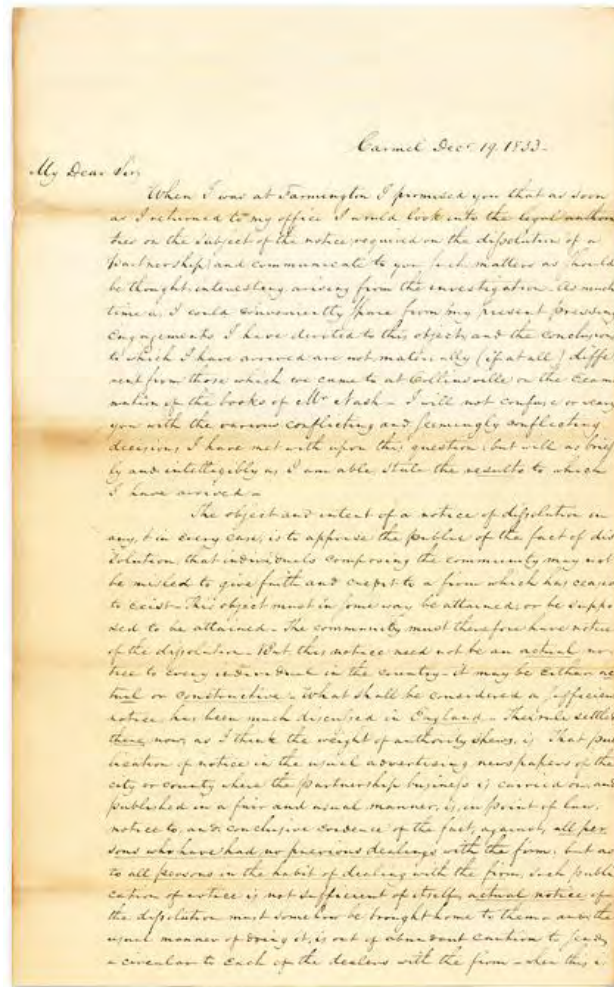 Carmel Decr 19. 1833-
My Dear Sir,
When I was at Farmington I promised you that as soon
as I returned to my office I would look into the legal author
ties on the subject of the notice required on the dissolution of a
partnership and communicate to you such matters as should
be thought interesting arising from the investigation. As much
time as I could conveniently spare from my present pressing
engagements I have devoted to this object, and the conclusions
to which I have arrived are not materially (if at all) diffe
rent from those which we came to at Collinsville on the exam
ination of the books of Mr Nash - I will not confuse or weary
you with the various conflicting and seemingly conflicting
decisions I have met with upon this question, but will as brief
ly and intelligibly as I am able, state the results to which
I have arrived -
The object and intent of a notice of dissolution in
any, & in every case, is to apprise the public of the fact of dis
solution, that individuals composing the community may not
be misled to give faith and credit to a firm which has ceased
to exist - This object must in some way be attained, or be suppo
sed to be attained - The community must therefore have notice
of the dissolution - But this notice need not be an actual no
tice to every individual in the country - it may be either ac
tual or constructive - What shall be considered a sufficient
notice, has been much discussed in England - The rule settled
there, now, as I think the weight of authority shews, is, That pub
lication of notice in the usual advertising newspapers of the
city or county where the partnership business is carried on, and
published in a fair and usual manner, is, in point of law,
notice to, and conclusive evidence of the fact, against, all per
sons who have had no previous dealings with the firm, but as
to all persons in the habit of dealing with the firm, such publi
cation of notice is not sufficient of itself, actual notice of
the dissolution must somehow be brought home to them - and the
usual manner of doing it, is out of abundant caution to send
a circular to each of the dealers with the firm - when this is